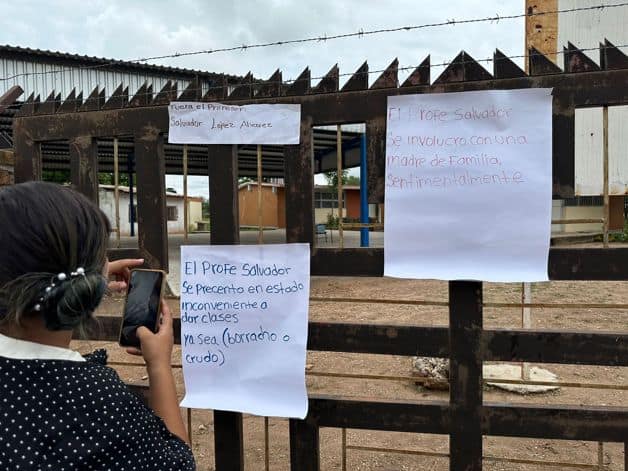 Fuera el Profesor
Salvador López Alvarez
El Profe Salvador
Se involucro con una
madre de Familia,
sentimentalmente
El Profe Salvador
Se precento en estado
inconveniente a
dar clases
ya sea, (borracho o
crudo)